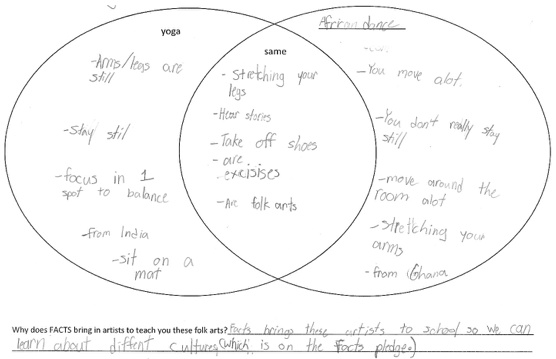 yoga
African dance
same
-Arms/legs are
still
-Stay stil
-focus in 1
spot to balance
-from India
-sit on a
mat
- Stretching your
legs
-Hear stories
-Take off shoes
- are
excisises
- Are folk arts
-You move alot.
-You don't really stay
still
-move around the
room alot
-stretching your
arms
-from Ghana
Why does FACTS bring in artists to teach you these folk arts? Facts brings these artists to school so we can
learn about diffent cultures, (which is on the Facts pledge.)